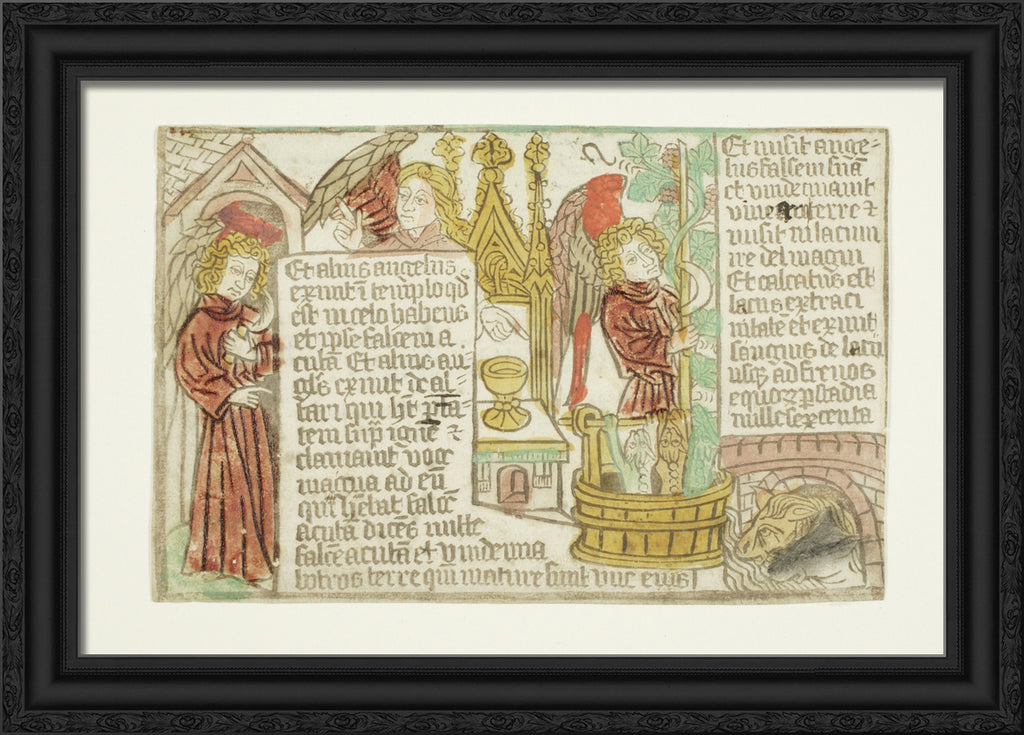 Et alius angelus
exivit d̄ templo qd̄
est in celo habens
et ipse falcem a
cutā Et alius an-
gl̄s exivit de al-
tari qui h̄t p̄ta
tem sup̄ ignē ⁊
clamavit voce
magna ad eū
qui h̄ebat falcē
acutā dicēs mitte
falcē acutā et vindemia
botros terre qm̄ mature sunt uve eius
Et misit ange-
lus falcem suā
et vindemiavit
vineā terre ⁊
misit in lacum
ire dei magni
Et calcatus est
lacus extra ci
vitate et exivit
sanguis de lacu
usq̄ ad frenos
equorꝝ p stadia
mille sexcenta